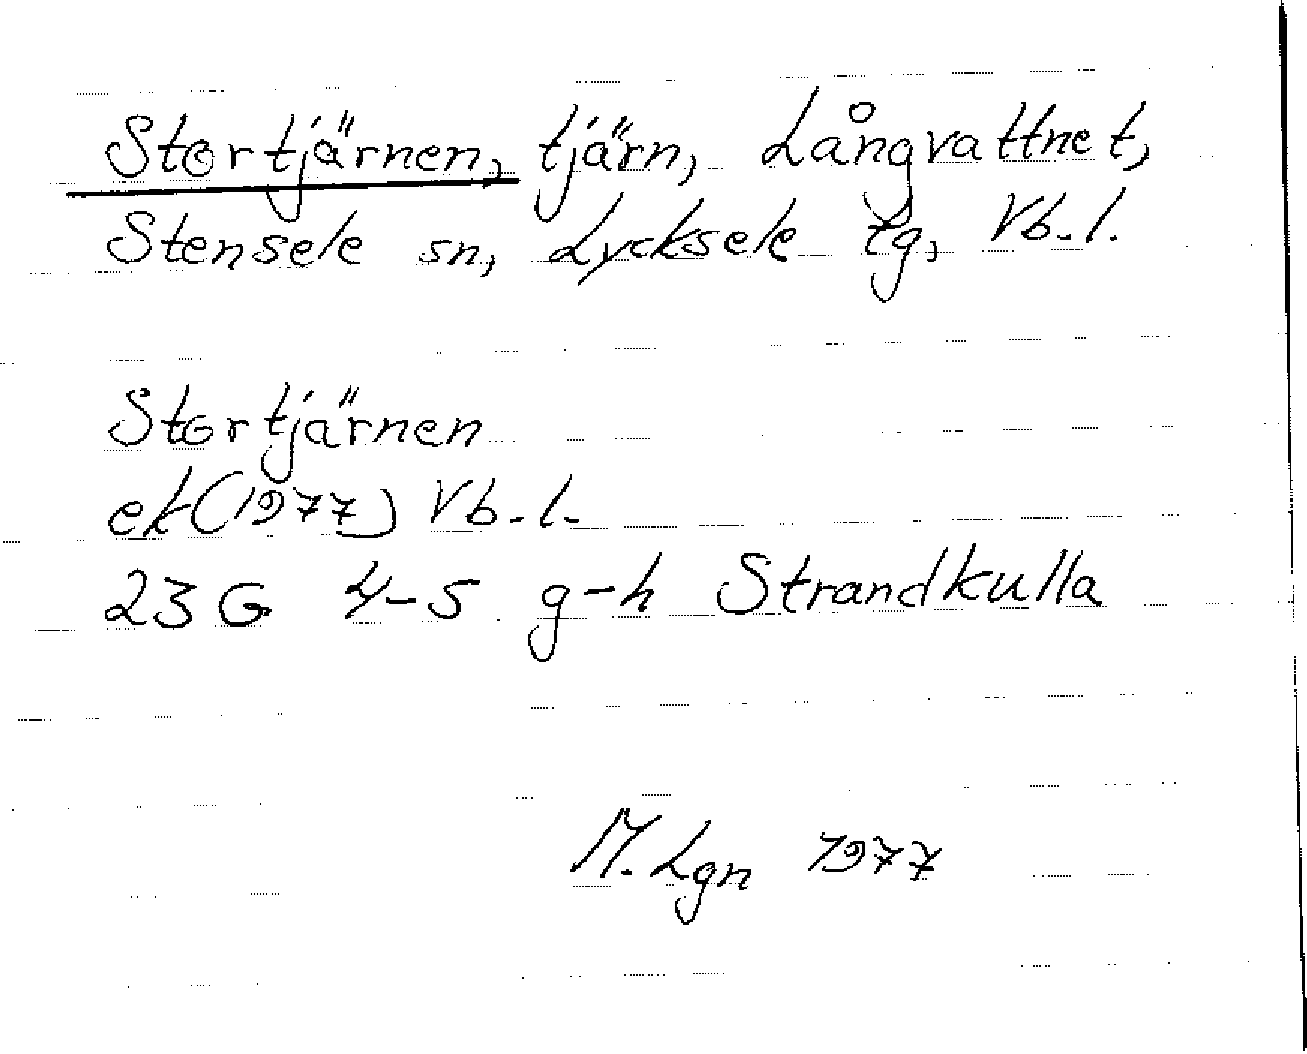 Stortjärnen, tjärn, Långvattnet,
Stensele sn, Lycksele tg, Vb. l.
Stortjärnen
ek (1977) Vb. l.
23 G 4-5 g-h Strandkulla
M. Lgn 1977